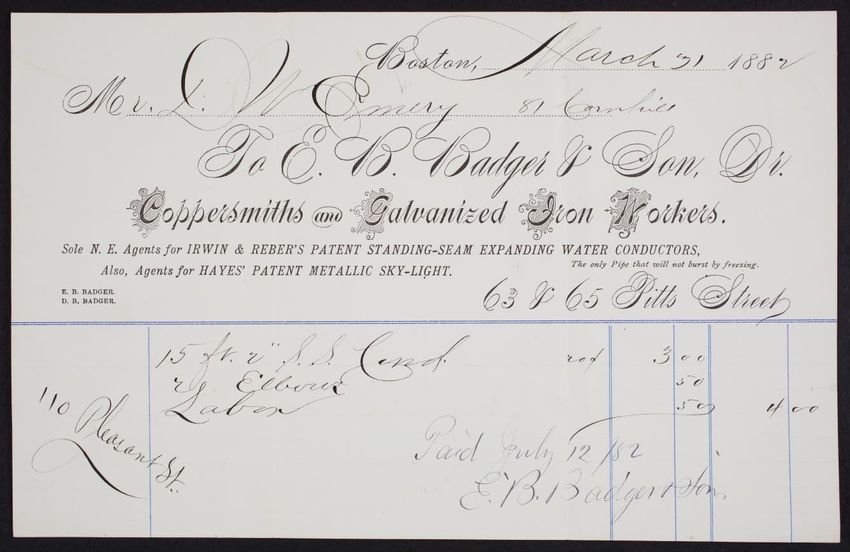 Boston, March 31 1882
Mr. D. W Emery 81 Cornhill
To E. B. Badger & Son, Dr.
Coppersmiths and Galvanized Iron Workers.
Sole N. E. Agents for IRWIN & REBER'S PATENT STANDING-SEAM EXPANDING WATER CONDUCTORS,
Also, Agents for HAYES' PATENT METALLIC SKY-LIGHT.
The only Pipe that will not burst by freezing.
E. B. BADGER.
D. B. BADGER.
63 & 65 Pitts Street
15 ft. 2" S. S. Cond. 20¢ 3 00
2 Elbows 50
Labor 50 4 00
110 Pleasant St.
Paid July 12/82
E. B. Badger & Son